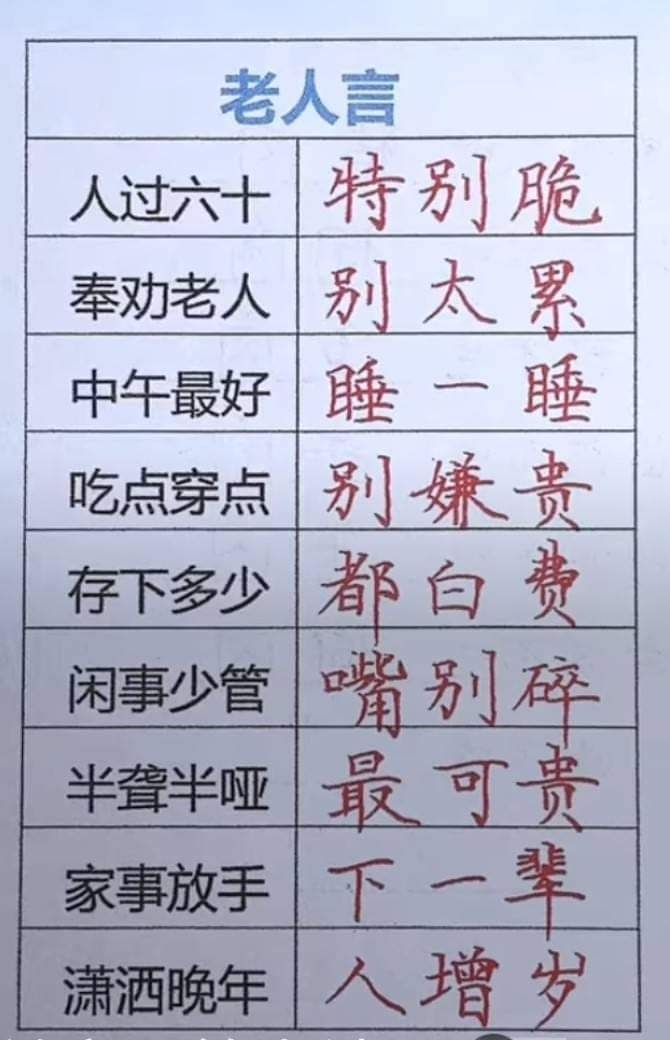 老人言
人过六十 特别脆
奉劝老人 别太累
中午最好 睡一睡
吃点穿点 别嫌贵
存下多少 都白费
闲事少管 嘴别碎
半聋半哑 最可贵
家事放手 下一辈
潇洒晚年 人增岁